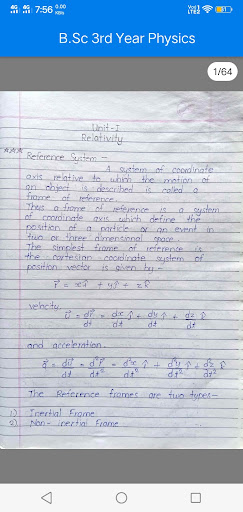 7:56 0.00 KB/s
B.Sc 3rd Year Physics
1/64
Unit-I
Relativity
Reference System -
A system of coordinate
axis relative to which the motion of
an object is described is called a
frame of reference.
Thus a frame of reference is a system
of coordinate axis which define the
position of a particle or an event in
two or three dimensional space.
The simplest frame of reference is
the cartesian coordinate system of
position vector is given by -
r⃗ = xî + yĵ + zk̂
velocity
v⃗ = dr⃗/dt = dx/dt î + dy/dt ĵ + dz/dt k̂
and acceleration.
a⃗ = dv⃗/dt = d²r⃗/dt² = d²x/dt² î + d²y/dt² ĵ + d²z/dt² k̂
The Reference frames are two types-
1) Inertial Frame
2) Non-inertial Frame